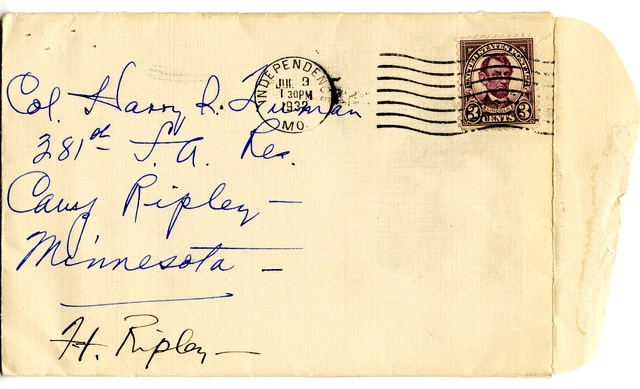 INDEPENDENCE
JUL 9
1 30PM
1932
MO.
UNITED STATES POSTAGE
LINCOLN
3 CENTS 3
Col. Harry S. Truman
381st F. A. Res.
Camp Ripley —
Minnesota —
Ft. Ripley —